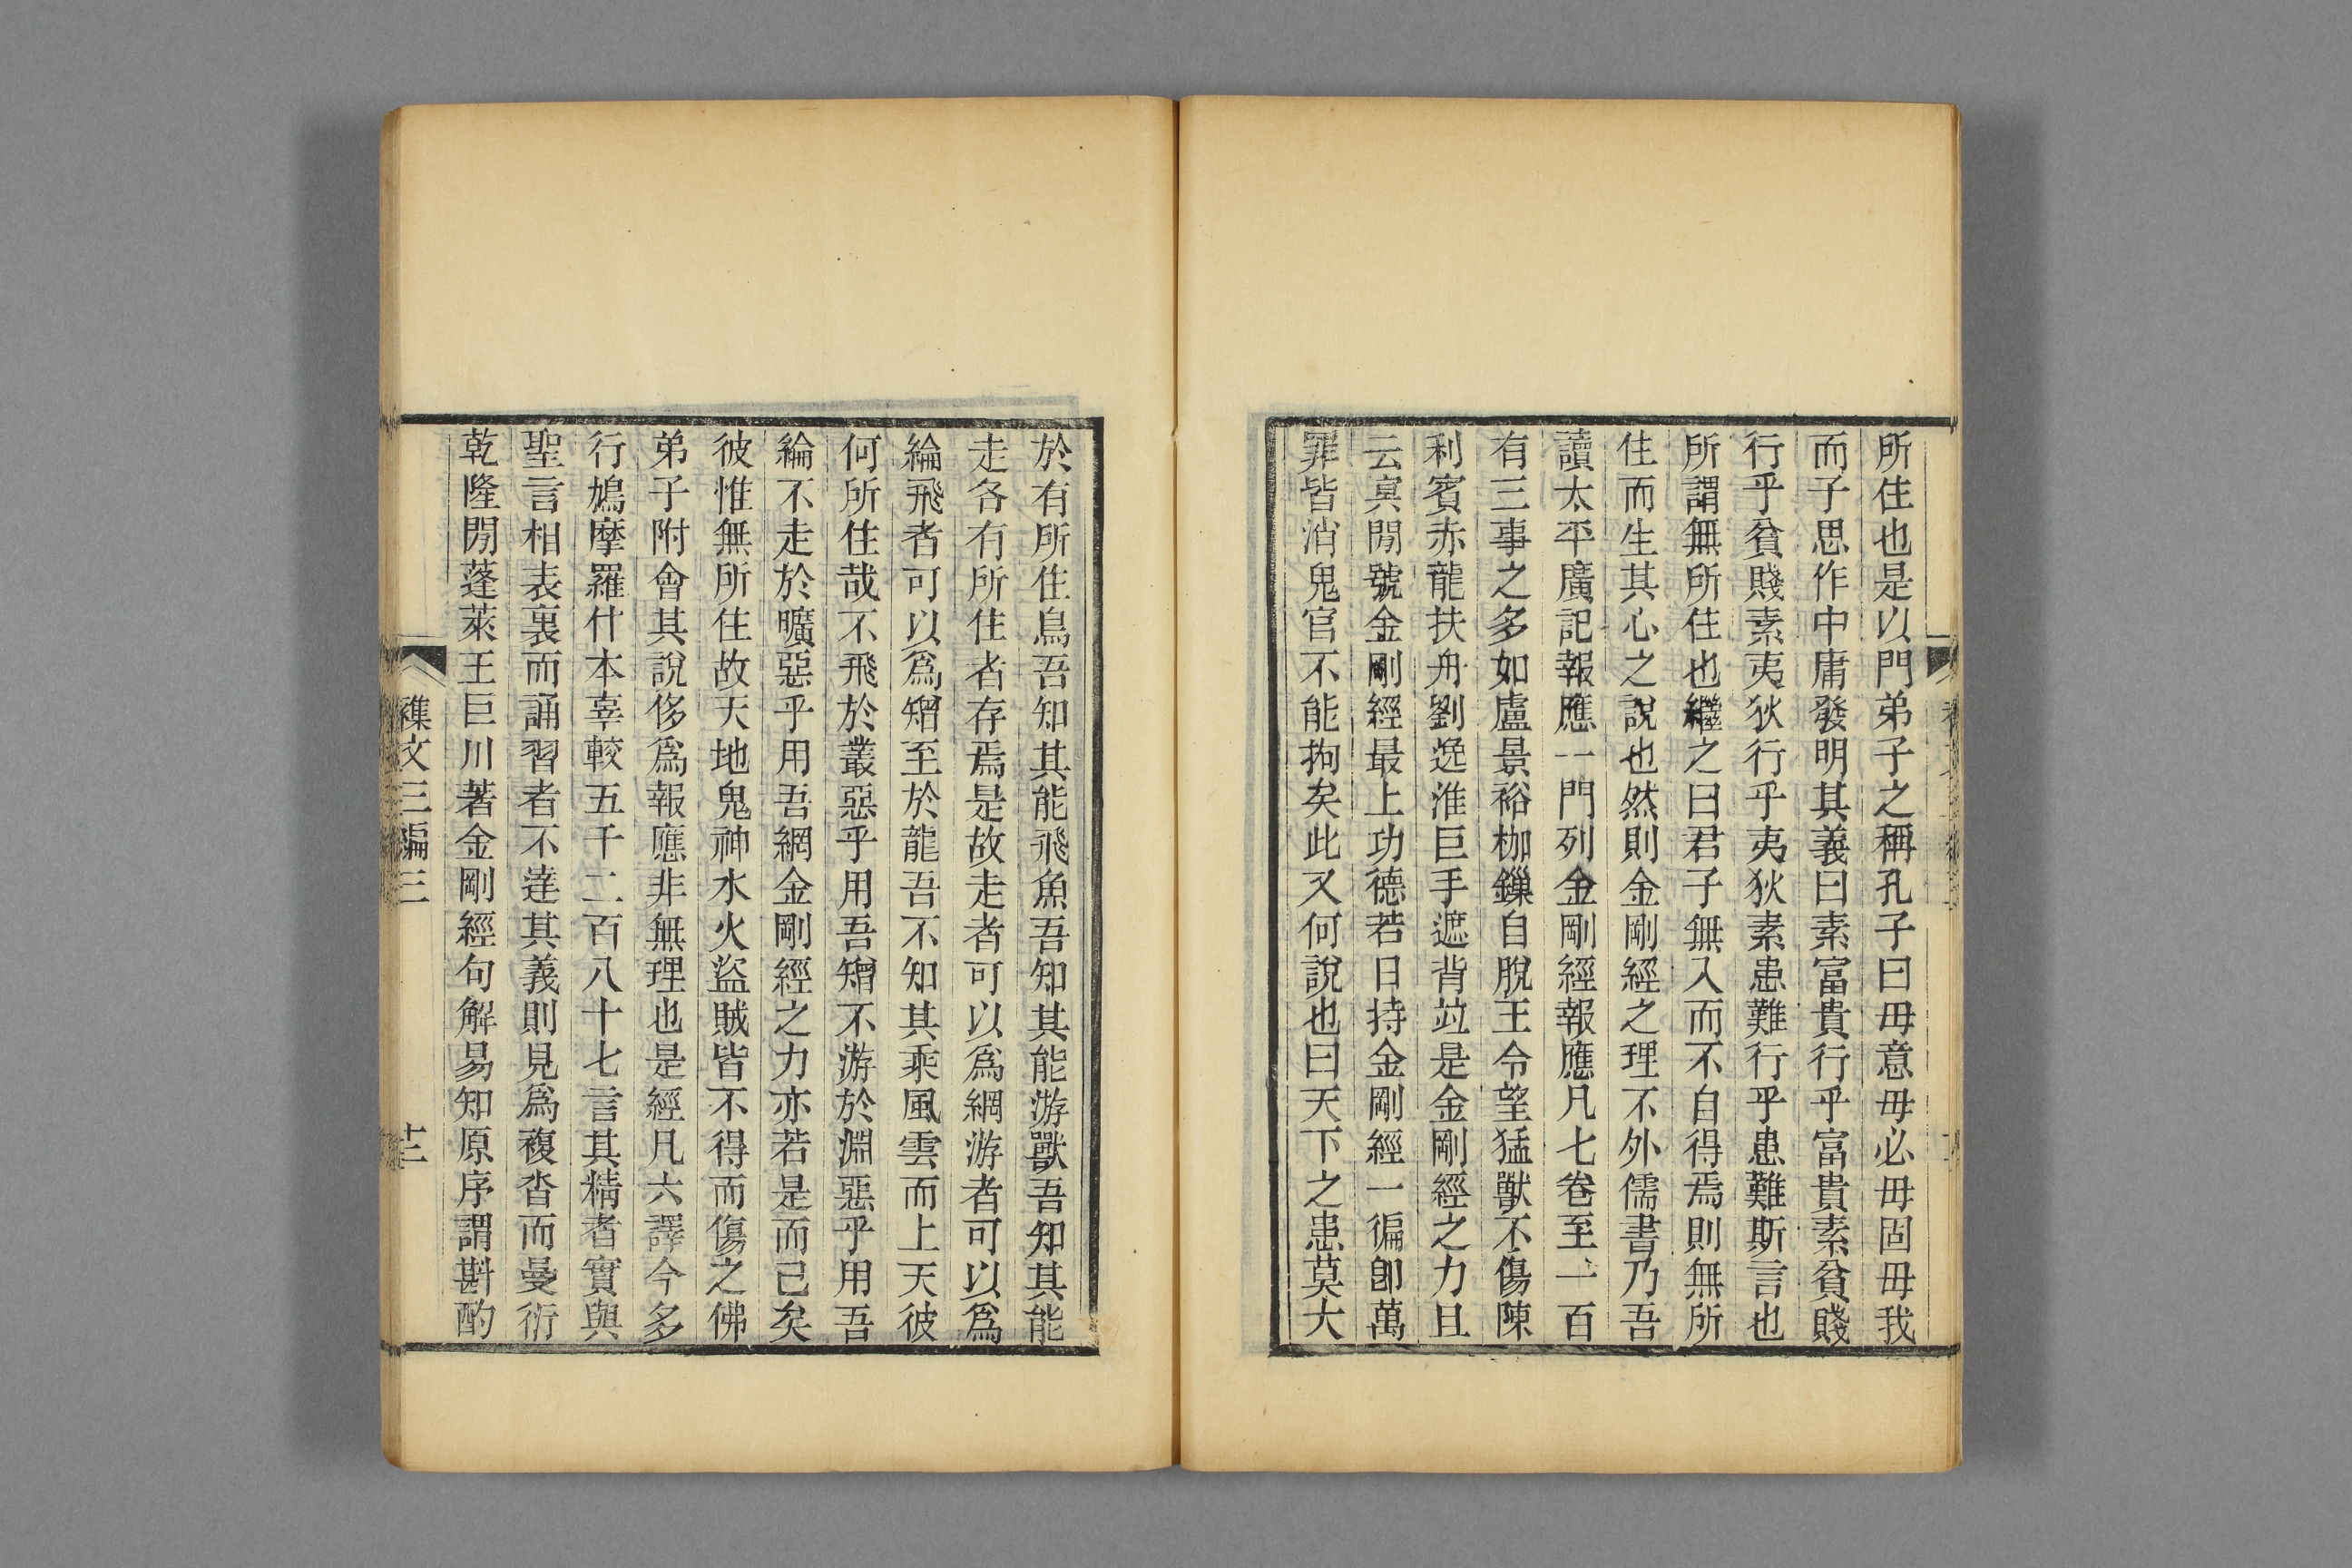 所住也是以門弟子之稱孔子曰毋意毋必毋固毋我
而子思作中庸發明其義曰素富貴行乎富貴素貧賤
行乎貧賤素夷狄行乎夷狄素患難行乎患難斯言也
所謂無所住也繼之曰君子無入而不自得焉則無所
住而生其心之說也然則金剛經之理不外儒書乃吾
讀太平廣記報應一門列金剛經報應凡七卷至一百
有三事之多如盧景裕枷鏁自脫王令望猛獸不傷陳
利賓赤龍扶舟劉逸淮巨手遮背竝是金剛經之力且
云冥閒號金剛經最上功德若日持金剛經一徧卽萬
罪皆消鬼官不能拘矣此又何說也曰天下之患莫大
於有所住鳥吾知其能飛魚吾知其能游獸吾知其能
走各有所住者存焉是故走者可以爲網游者可以爲
綸飛者可以爲矰至於龍吾不知其乘風雲而上天彼
何所住哉不飛於叢惡乎用吾矰不游於淵惡乎用吾
綸不走於曠惡乎用吾網金剛經之力亦若是而已矣
彼惟無所住故天地鬼神水火盜賊皆不得而傷之佛
弟子附會其說侈爲報應非無理也是經凡六譯今多
行鳩摩羅什本辜較五千二百八十七言其精者實與
聖言相表裏而誦習者不達其義則見爲複沓而曼衍
乾隆閒蓬萊王巨川著金剛經句解易知原序謂斟酌
襍文三編三
十三